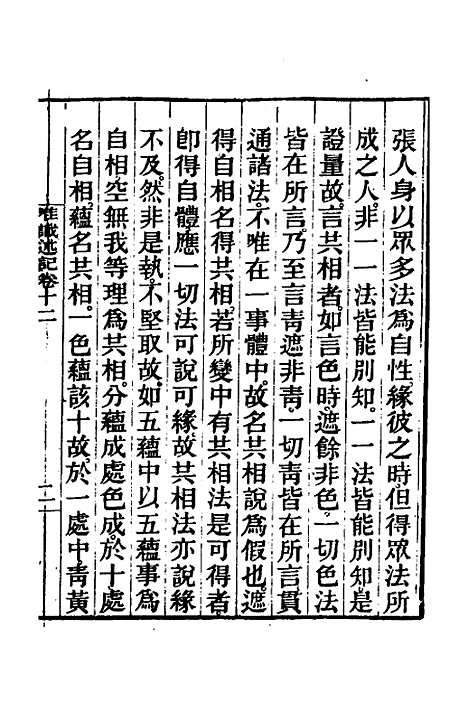 張人身以眾多法爲自性緣彼之時但得眾法所
成之人非一一法皆能別知一一法皆能別知是
證量故言共相者如言色時遮餘非色一切色法
皆在所言乃至言靑遮非靑一切靑皆在所言貫
通諸法不唯在一事體中故名共相說爲假也遮
得自相名得共相若所變中有共相法是可得者
卽得自體應一切法可說可緣故共相法亦說緣
不及然非是執不堅取故如五蘊中以五蘊事爲
自相空無我等理爲共相分蘊成處色成於十處
名自相蘊名共相一色蘊該十故於一處中靑黃
唯識述記卷十二
二